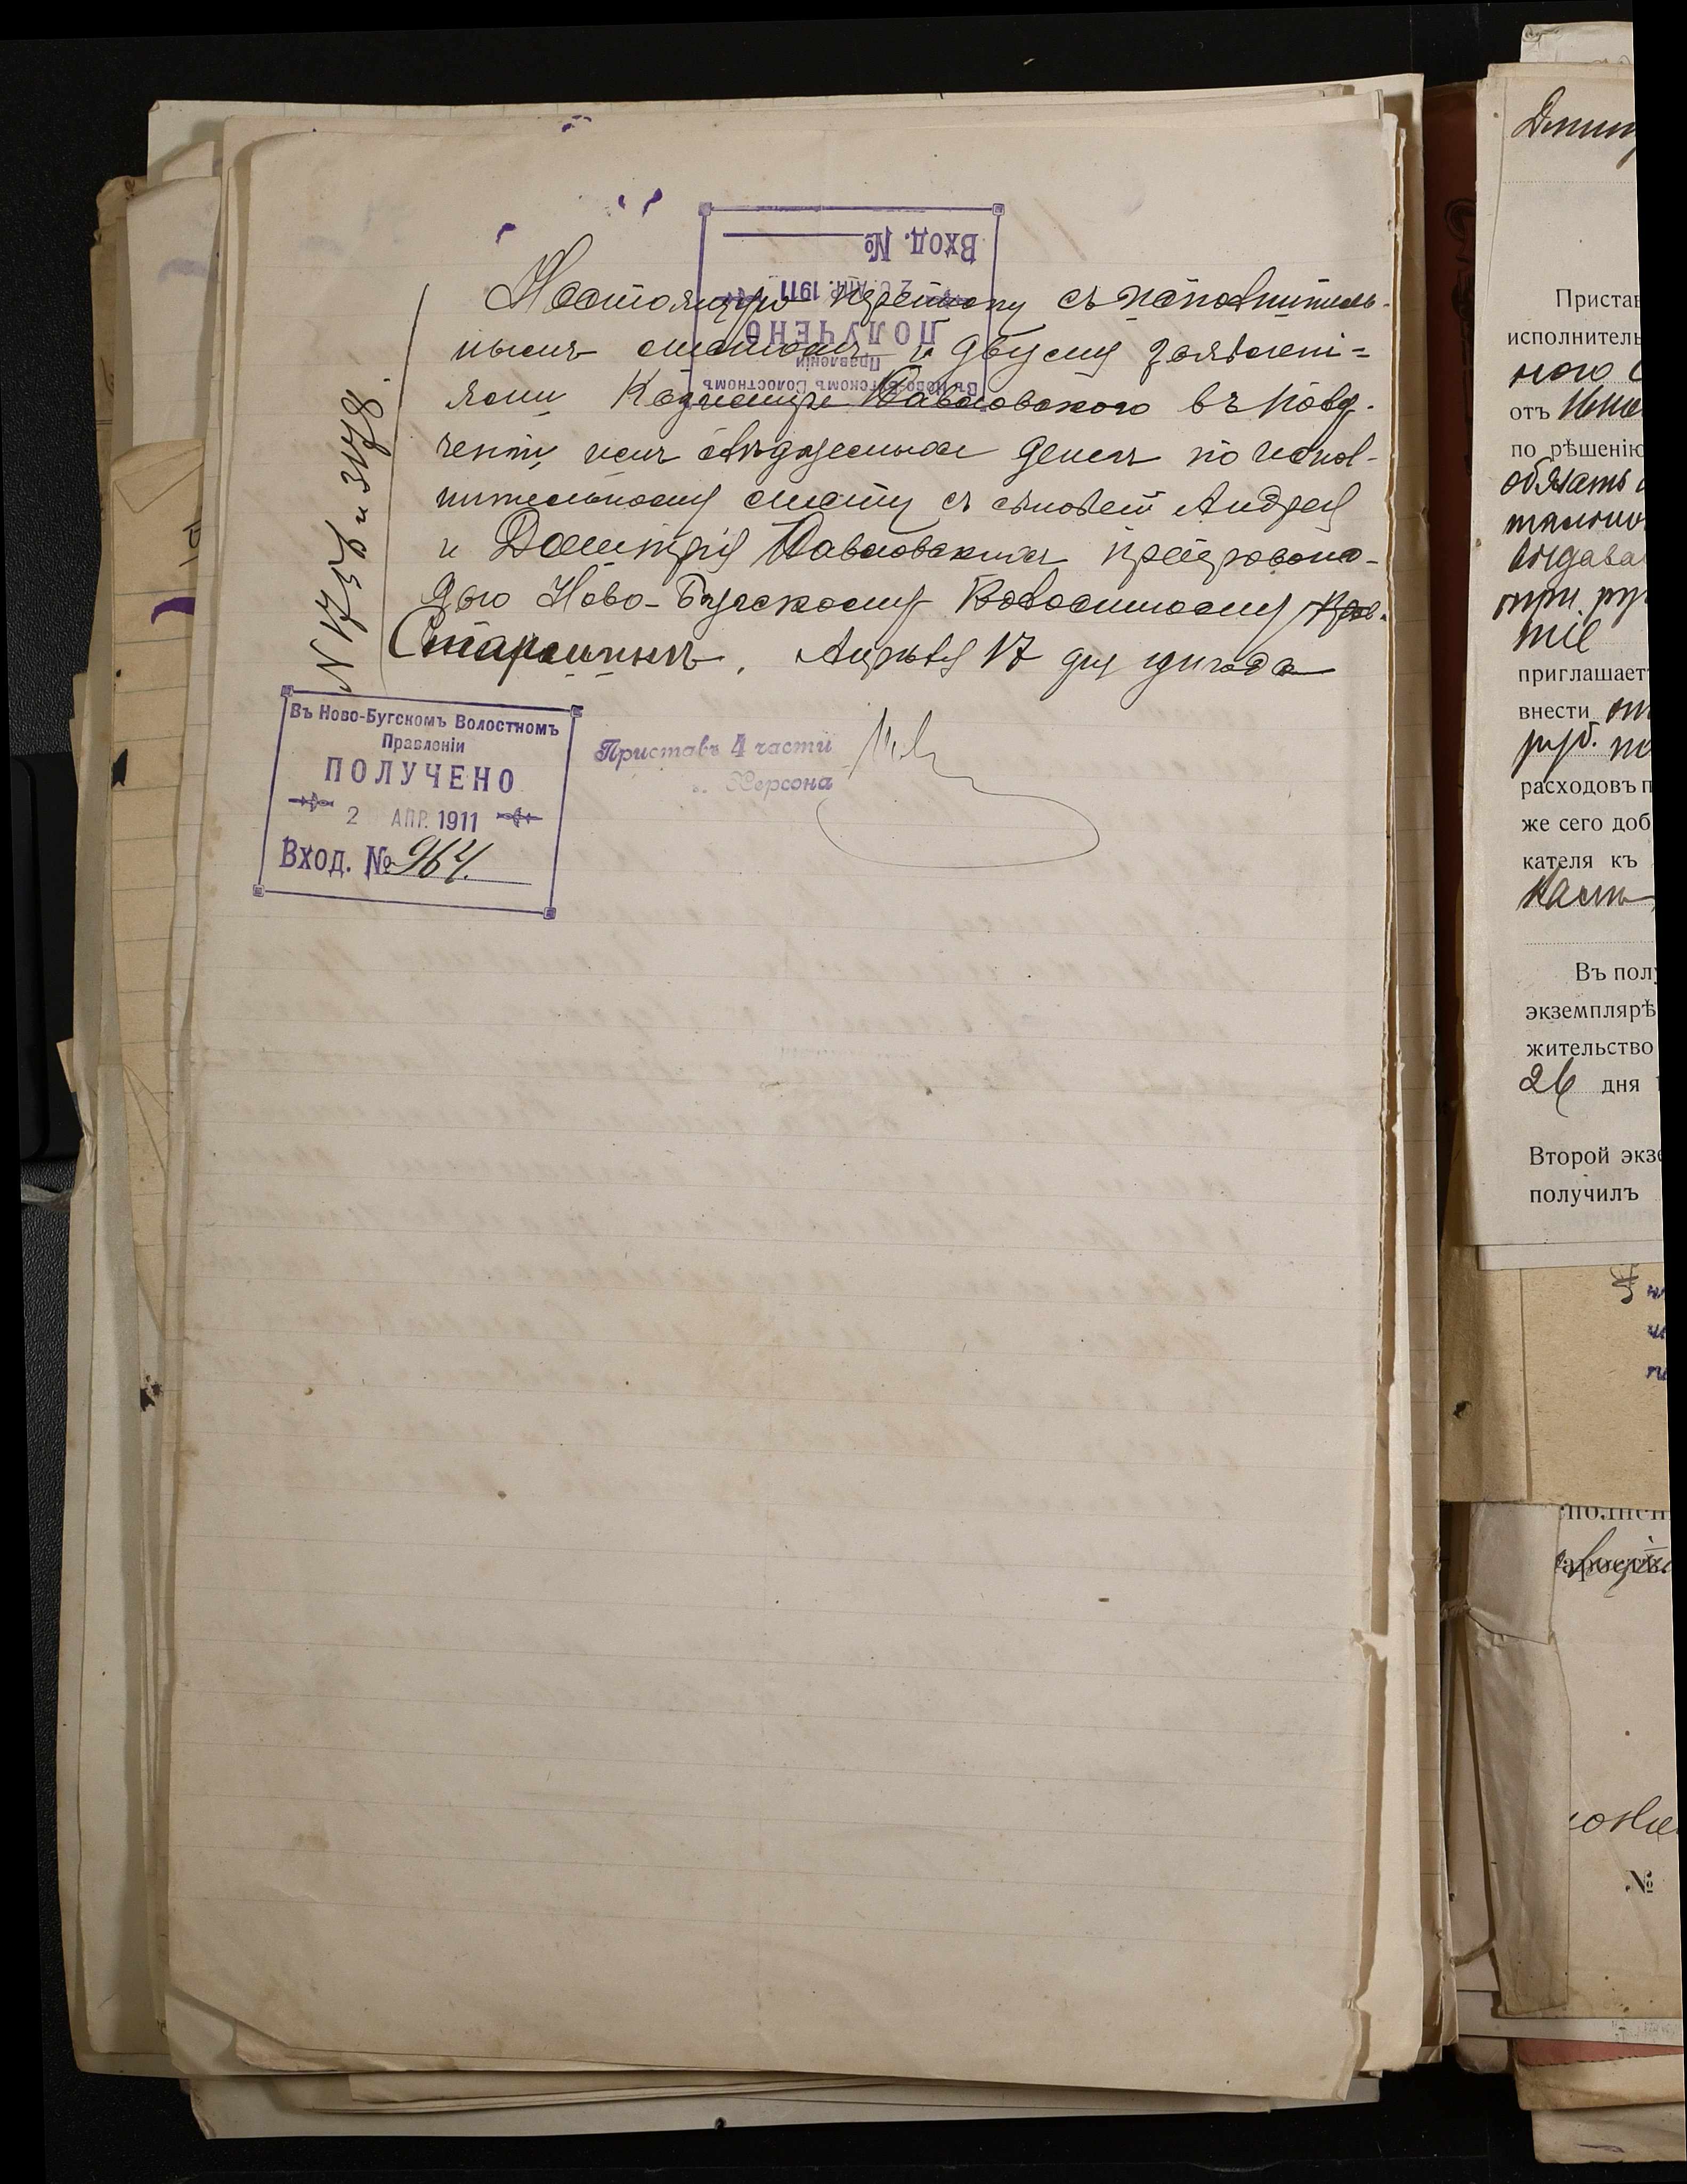 Вход. №
2 АПР. 1911
ПОЛУЧЕНО
Правленіи
Въ Ново-Бугскомъ Волостномъ
Настоящую переписку съ исполнитель-
нымъ листомъ и двумя заявлені=
ями Казимира Павловского въ полу-
ченіи имъ слѣдуемыхъ денегъ по испол-
нительному листу съ сыновей Андрея
и Дмитрія Павловскихъ препровож-
даю Ново-Бугскому Волостному
Старшинѣ. Апрѣля 17 дня 1911 года
Въ Ново-Бугскомъ Волостномъ
Правленіи
ПОЛУЧЕНО
2 АПР. 1911
Вход. № 964.
Приставъ 4 части
Херсона
Дмит
Пристав
исполнитель
ного с
отъ
по рѣшенію
обязать
выдава
три ру
тіе
приглашает
внести
руб. по
расходовъ п
же сего доб
кателя къ
части
Въ пол
экземплярѣ
жительство
26 дня
Второй экзе
получилъ
№